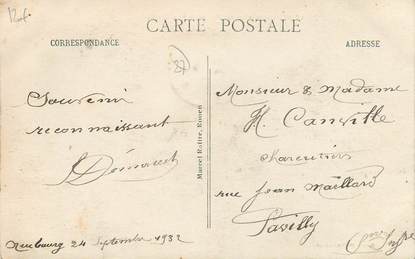 CARTE POSTALE
CORRESPONDANCE
ADRESSE
37
Souvenir
reconnaissant
Marcel Ratire, Rouen
Monsieur & Madame
H. Canville
charcutier
rue Jean Maillard
Pavilly
Neubourg 24 Septembre 1932